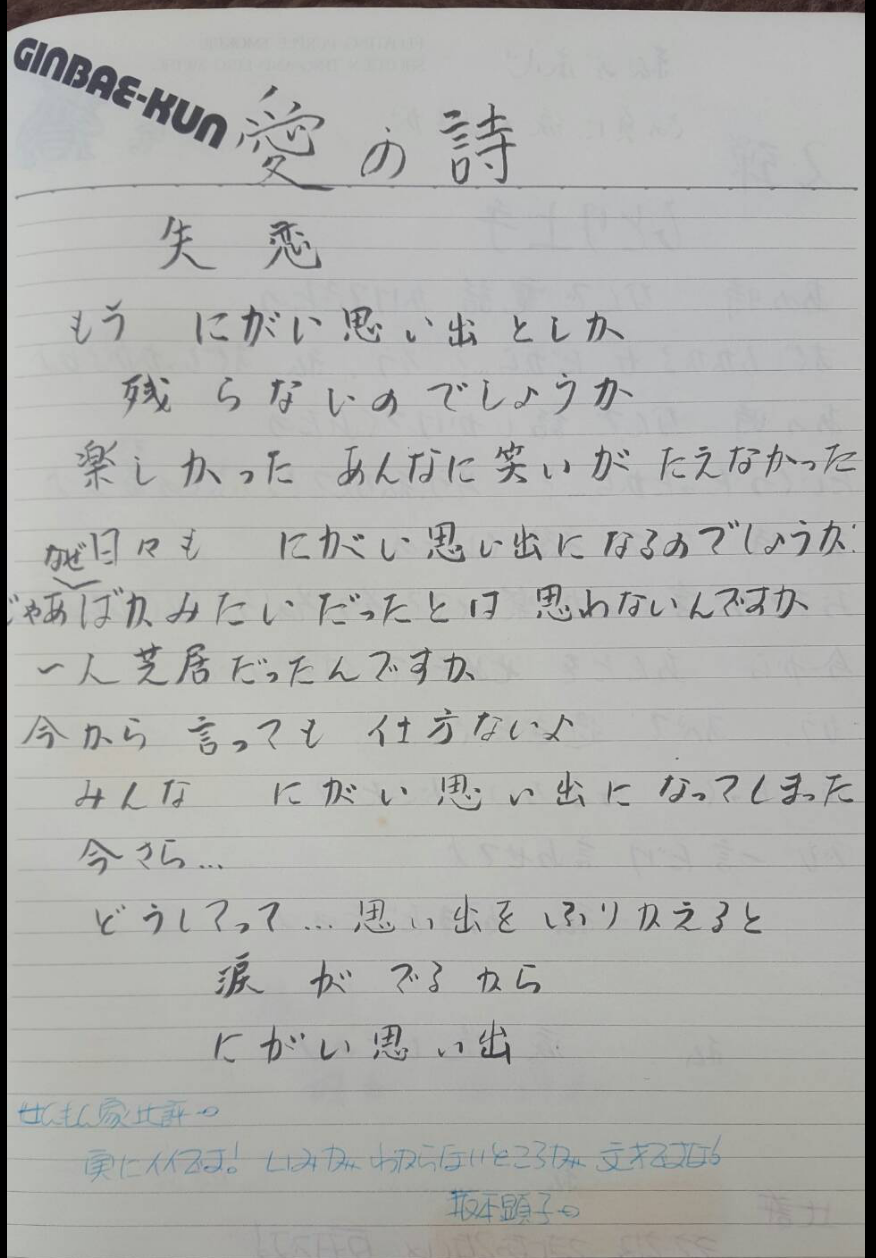 GINBAE-KUN
愛の詩
失恋
もう にがい思い出としか
残らないのでしょうか
楽しかった あんなに笑いが たえなかった
日々も にがい思い出になるのでしょうか
なぜ
じゃあばかみたいだったとは 思わないんですか
一人芝居だったんですか
今から 言っても 仕方ないよ
みんな にがい思い出に なってしまった
今さら…
どうしてって…思い出を ふりかえると
涙が でるから
にがい思い出
せんもん家比評→
実にイイではないか! いみが わからないところが